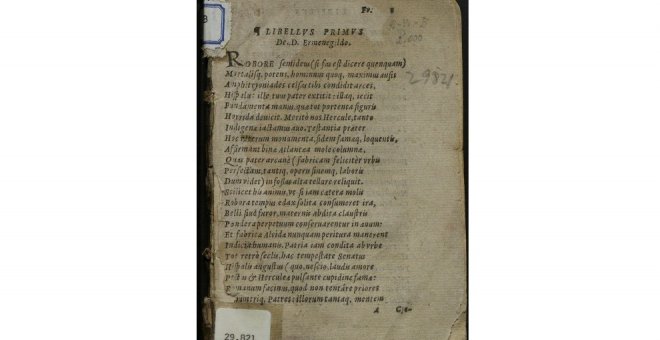 Fo. 1
¶ LIBELLVS PRIMVS
De. D. Ermenegildo.
29821
ROBORE semideus (si fas est dicere quenquam)
Mortalisq. potens, hominum quoq. maximus ausis
Amphitryoniades celsas tibi condidit arces,
Hispalis: ille tuus pater extitit: illaq. iecit
Fundamenta manus, quæ tot portenta figuris
Horrida deuicit. Meritò nos Hercule, tanto
Indigenæ iactamus auo. Testantia præter
Hoc veterum monumenta, fidem famæq. loquentis,
Affirmant binæ Atlantea mole columnæ,
Quas pater arcanè (fabricam feliciter vrbis
Perfectam, tantiq. operis finemq. laboris
Dum videt) infossas alta tellure reliquit.
Scilicet his animis, vt si iam cætera molis
Robora tempus edax solita consumeret ira,
Belli siue furor, maternis abdita claustris
Pondera perpetuum conseruarentur in æuum:
Et fabricæ Alcidæ nunquam peritura manerent
Indicia humanis. Patria iam condita ab vrbe
Tot retro seclis, hac tempestate Senatus
Hispalis angustus (quo, nescio, laudis amore
Pectus & Herculeæ pulsante cupidine famæ:
Romanum facinus, quod non tentare priores
Patres: illorum tamq. mentem
A
29.821